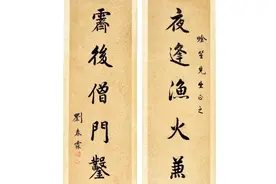 先生正之
夜逢漁火兼
霽後僧門鑿
劉春霖